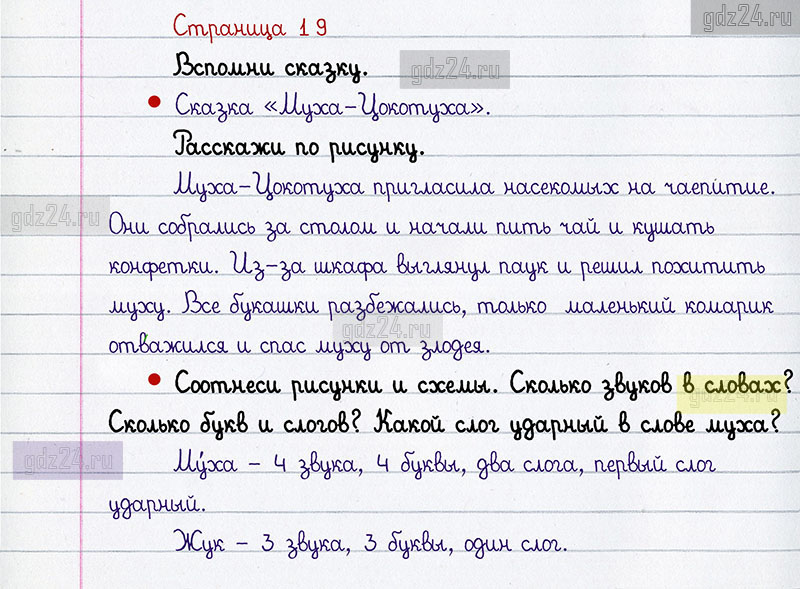 gdz24.ru
Страница 19
Вспомни сказку.
gdz24.ru
• Сказка «Муха-Цокотуха».
Расскажи по рисунку.
Муха-Цокотуха пригласила насекомых на чаепитие.
gdz24.ru
Они собрались за столом и начали пить чай и кушать
конфетки. Из-за шкафа выглянул паук и решил похитить
муху. Все букашки разбежались, только маленький комарик
gdz24.ru
отважился и спас муху от злодея.
• Соотнеси рисунки и схемы. Сколько звуков в словах?
gdz24.ru
Сколько букв и слогов? Какой слог ударный в слове муха?
gdz24.ru
Му́ха – 4 звука, 4 буквы, два слога, первый слог
ударный.
Жук – 3 звука, 3 буквы, один слог.